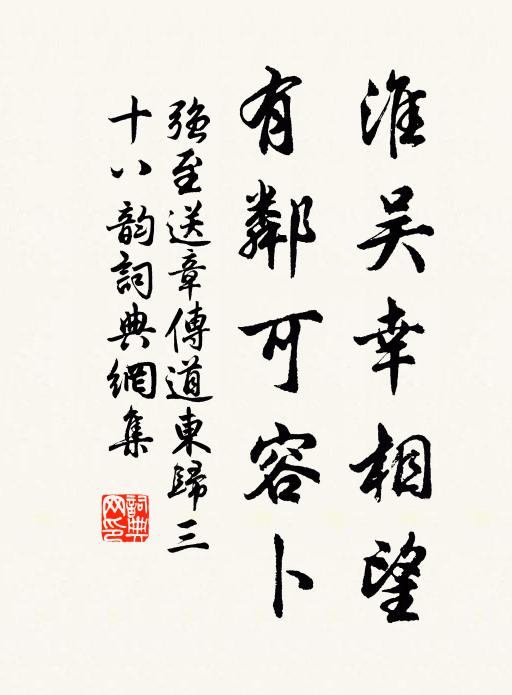 淮吴幸相望
有鄰可容卜
強至送章傳道東歸三
十八韵詞典網集
詞典
网印